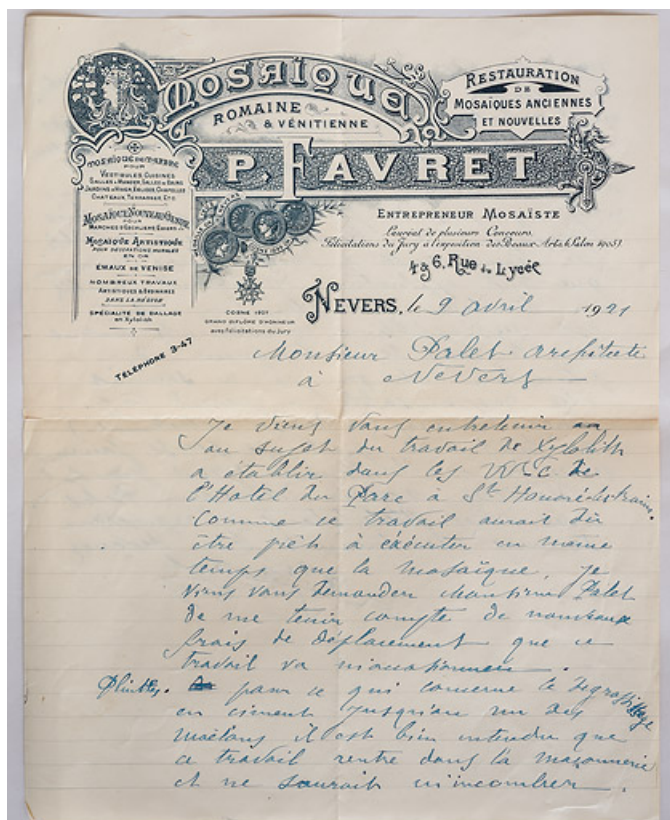 MOSAÏQUE
ROMAINE
& VÉNITIENNE
RESTAURATION
DE
MOSAÏQUES ANCIENNES
ET NOUVELLES
P. FAVRET
MOSAÏQUE DE MARBRE
POUR
VESTIBULES, CUISINES
SALLES à MANGER, SALLES de BAINS
JARDINS d'HIVER, EGLISES, CHAPELLES
CHATEAUX, TERRASSES, ETC.
MOSAÏQUE NOUVEAU GENRE
POUR
MARCHES D'ESCALIERS, EVIERS
MOSAÏQUE ARTISTIQUE
POUR DÉCORATIONS MURALES
EN OR
EMAUX DE VENISE
NOMBREUX TRAVAUX
ARTISTIQUES & ORDINAIRES
DANS LA RÉGION
SPÉCIALITÉ DE DALLAGE
en Xylolith
ENTREPRENEUR MOSAÏSTE
Lauréat de plusieurs Concours.
Félicitations du Jury à l'exposition des Beaux-Arts & Salon
4 & 6, Rue du Lycée
COSNE 1907
GRAND DIPLÔME D'HONNEUR
avec Félicitations du Jury
NEVERS, le 9 avril 1921
TELEPHONE 3-47
Monsieur Palet architecte
à Nevers
Je viens vous entretenir
au sujet du travail de Xylolith
a établir dans les W.C. de
l'Hotel du Parc à St Honoré-les-bains.
Comme ce travail aurait du
être prêt à éxécuter en même
temps que la mosaïque, Je
viens vous demander Monsieur Palet
de me tenir compte de nouveaux
frais de déplacement que ce
travail va
Plinthes. pour ce qui concerne le degrossissage
en ciment jusqu'au nu des
moëlons il est bien entendu que
ce travail rentre dans la maçonnerie
et ne saurait m'incomber.